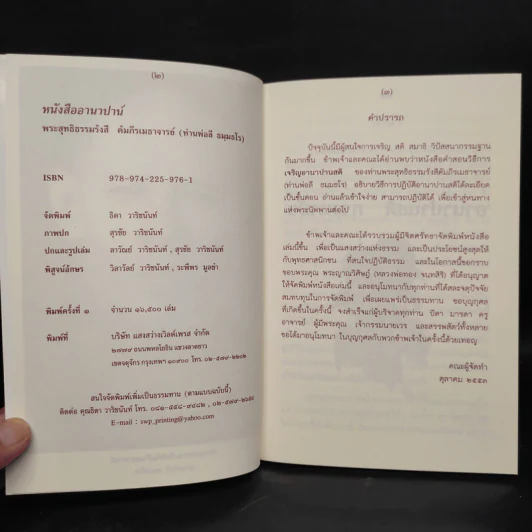 (๒)
หนังสืออานาปาน์
พระสุทธิธรรมรังสี คัมภีรเมธาจารย์ (ท่านพ่อลี ธมฺมธโร)
ISBN 978-974-225-976-1
จัดพิมพ์ ธิดา วาริชนันท์
ภาพปก สุรชัย วาริชนันท์
ปกและรูปเล่ม ลาวัณย์ วาริชนันท์ , สุรชัย วาริชนันท์
พิสูจน์อักษร วิลาวัลย์ วาริชนันท์ , ระพีพร มูลยำ
พิมพ์ครั้งที่ ๑ จำนวน ๑๐,๕๐๐ เล่ม
พิมพ์ที่ บริษัท แสงสว่างเวิลด์เพรส จำกัด
๒๗๗๙ ถนนพหลโยธิน แขวงลาดยาว
เขตจตุจักร กรุงเทพฯ ๑๐๙๐๐ โทร. ๐๒-๕๗๙-
สนใจจัดพิมพ์เพิ่มเป็นธรรมทาน (ตามแบบฉบับนี้)
ติดต่อ คุณธิดา วาริชนันท์ โทร. ๐๘๑-๔๕๘-๙๔๘๒ , ๐๒-๕๗๙-
E-mail : swp_printing@yahoo.com
(๓)
คำปรารภ
ปัจจุบันนี้มีผู้สนใจการเจริญ สติ สมาธิ วิปัสสนากรรมฐาน
กันมากขึ้น ข้าพเจ้าและคณะได้อ่านพบว่าหนังสือคำสอนวิธีการ
เจริญอานาปานสติ ของท่านพระสุทธิธรรมรังสีคัมภีรเมธาจารย์
(ท่านพ่อลี ธมฺมธโร) อธิบายวิธีการปฏิบัติอานาปานสติได้ละเอียด
เป็นขั้นตอน อ่านแล้วเข้าใจง่าย สามารถปฏิบัติได้ เพื่อเข้าสู่หนทาง
แห่งพระนิพพานต่อไป
ข้าพเจ้าและคณะได้รวบรวมผู้มีจิตศรัทธาจัดพิมพ์หนังสือ
เล่มนี้ขึ้น เพื่อเป็นแสงสว่างแห่งธรรม และเป็นประโยชน์สูงสุดให้
กับพุทธศาสนิกชน ที่สนใจปฏิบัติธรรม และในโอกาสนี้ขอกราบ
ขอบพระคุณ พระญาณวิศิษฏ์ (หลวงพ่อทอง จนฺทสิริ) ที่ได้อนุญาต
ให้จัดพิมพ์หนังสือเล่มนี้ และอนุโมทนากับทุกท่านที่ได้สละจตุปัจจัย
สมทบทุนในการจัดพิมพ์ เพื่อเผยแพร่เป็นธรรมทาน ขอบุญกุศล
ที่เกิดขึ้นในครั้งนี้ จงสำเร็จแก่ผู้บริจาคทุกท่าน บิดา มารดา ครู
อาจารย์ ผู้มีพระคุณ เจ้ากรรมนายเวร และสรรพสัตว์ทั้งหลาย
ขอได้มาอนุโมทนา ในบุญกุศลกับพวกข้าพเจ้าในครั้งนี้ด้วยเทอญ
คณะผู้จัดทำ
ตุลาคม ๒๕๕๓